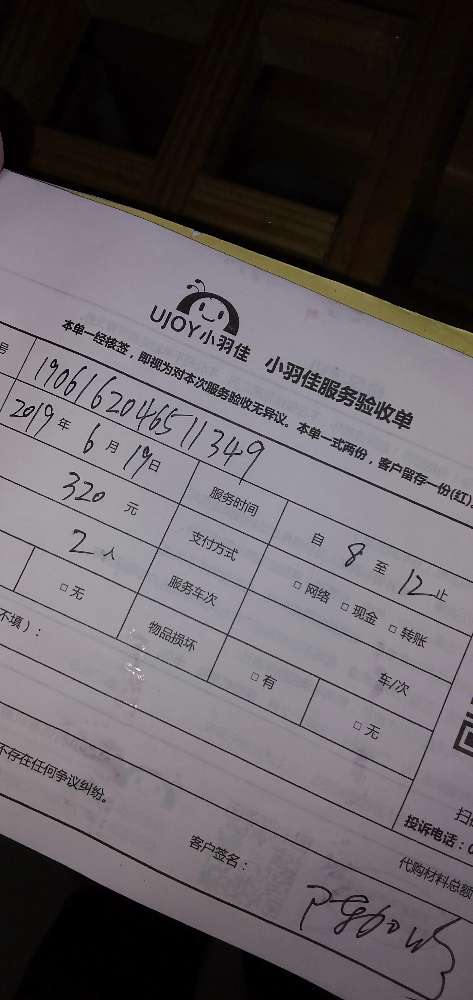 UJOY小羽佳 小羽佳服务验收单
本单一经接签，即视为对本次服务验收无异议。本单一式两份，客户留存一份(红)
号 190616204651 1349
2019年6月19日 服务时间 自 8 至 12 止
320 元 支付方式 □ 网络 □ 现金 □ 转账
2 人 服务车次 车/次
□ 无 物品损坏 □ 有 □ 无
不填)：
不存在任何争议纠纷。
扫
投诉电话：0
代购材料总额
客户签名：